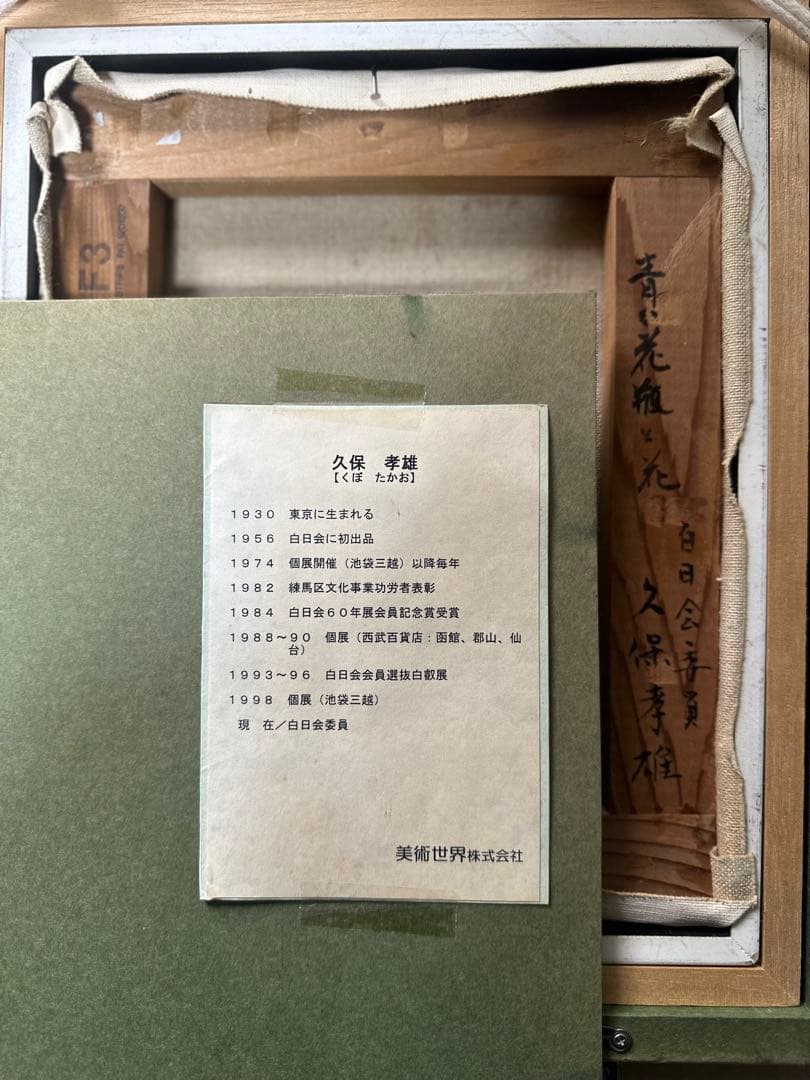 F3
青い花瓶と花
白日会委員
久保孝雄
久保　孝雄
【くぼ　たかお】
１９３０　東京に生まれる
１９５６　白日会に初出品
１９７４　個展開催（池袋三越）以降毎年
１９８２　練馬区文化事業功労者表彰
１９８４　白日会６０年展会員記念賞受賞
１９８８～９０　個展（西武百貨店：函館、郡山、仙
台）
１９９３～９６　白日会会員選抜白叡展
１９９８　個展（池袋三越）
現　在／白日会委員
美術世界株式会社